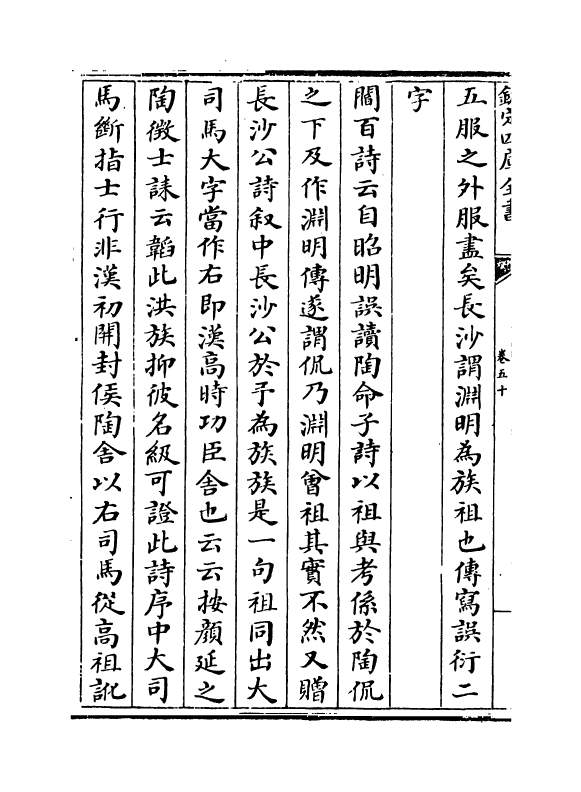 欽定四庫全書
卷五十
五服之外服盡矣長沙謂淵明為族祖也傳寫誤衍二
字
閻百詩云自昭明誤讀陶命子詩以祖與考係於陶侃
之下及作淵明傳遂謂侃乃淵明曾祖其實不然又贈
長沙公詩叙中長沙公於予為族族是一句祖同出大
司馬大字當作右即漢高時功臣舍也云云按顔延之
陶徴士誄云韜此洪族抑彼名級可證此詩序中大司
馬斷指士行非漢初開封侯陶舍以右司馬從高祖訛